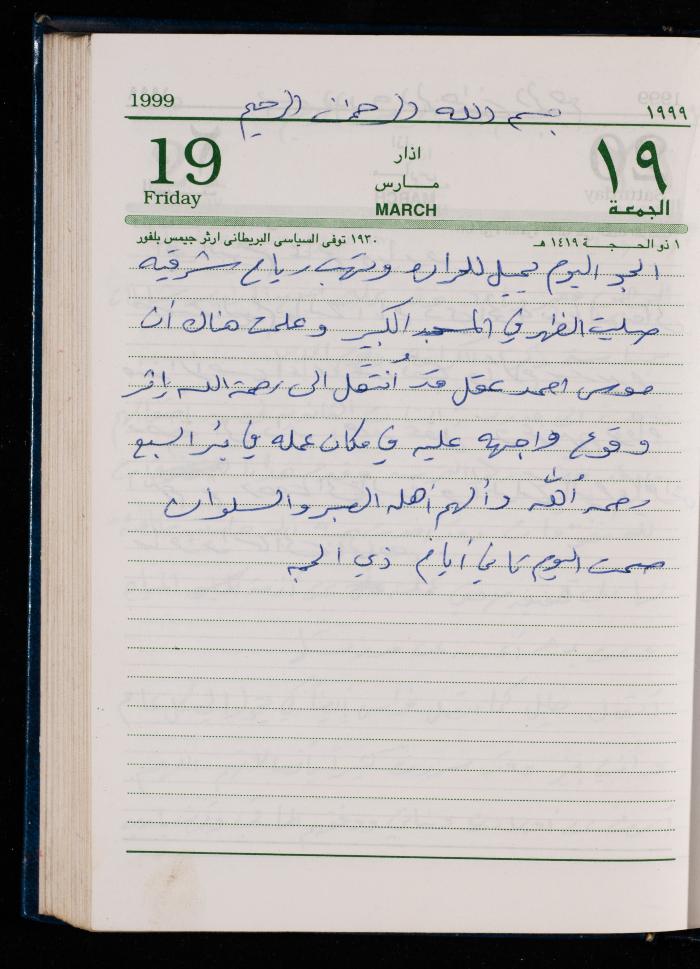 1999 بسم الله الرحمن الرحيم ١٩٩٩
19 اذار ١٩
Friday مارس الجمعة
MARCH
١ ذو الحجة ١٤١٩ هـ ١٩٣٠ توفى السياسى البريطانى ارثر جيمس بلفور
الجو اليوم يميل للحراره وتهب رياح شرقيه
صليت الظهر في المسجد الكبير وعلمت هناك أن
موسى احمد عقل قد أنتقل الى رحمة الله إثر
وقوع واجهه عليه في مكان عمله في بئر السبع
رحمه الله وألهم أهله الصبر والسلوان
صمت اليوم ثاني أيام ذي الحجه